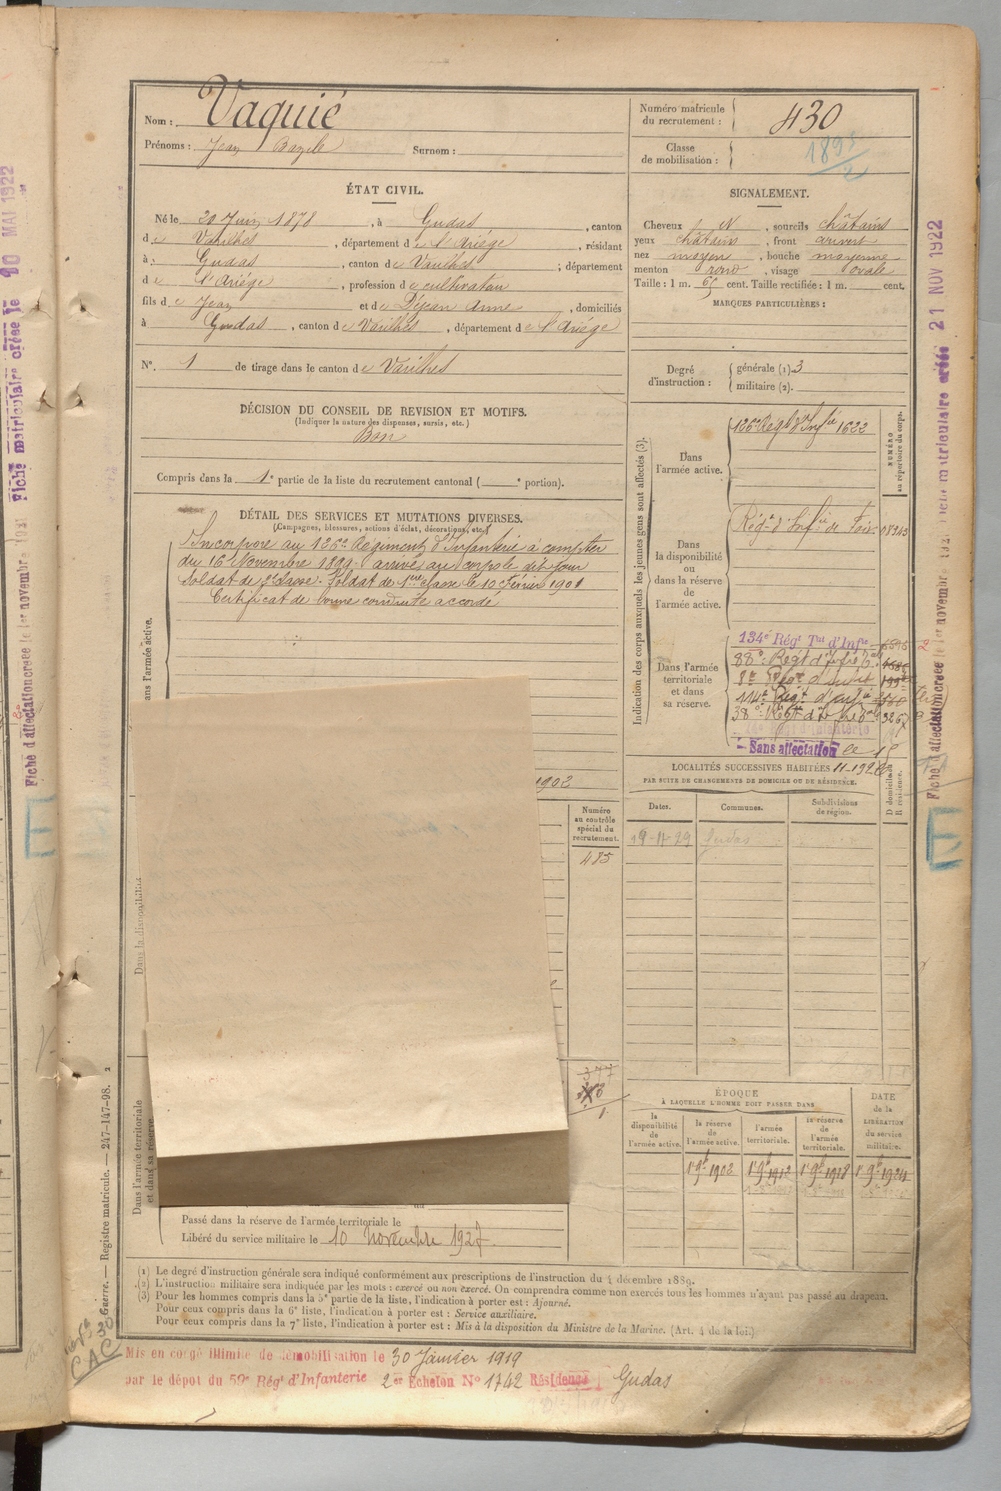 Nom : Vaquié
Prénoms : Jean Bazile Surnom :
Numéro matricule du recrutement : 430
Classe de mobilisation :
ÉTAT CIVIL.
Né le 20 Juin 1878, à Gudas, canton
de Varilhes, département de l'Ariège, résidant
à Gudas, canton de Varilhes; département
de l'Ariège, profession de cultivateur
fils de Jean et de Dejean Anne, domiciliés
à Gudas, canton de Varilhes, département de l'Ariège
N° 1 de tirage dans le canton de Varilhes
DÉCISION DU CONSEIL DE REVISION ET MOTIFS.
(Indiquer la nature des dispenses, sursis, etc.)
Bon
Compris dans la 1e partie de la liste du recrutement cantonal ( e portion).
DÉTAIL DES SERVICES ET MUTATIONS DIVERSES.
(Campagnes, blessures, actions d'éclat, décorations, etc.)
Incorporé au 126e Régiment d'Infanterie à compter
du 16 Novembre 1899. arrivé au corps le dit jour
Soldat de 2e classe. Soldat de 1ère classe le 10 février 1901
Certificat de bonne conduite accordé
1902
Numéro
au contrôle
spécial du
recrutement.
485
377
Dans la disponibilité
Dans l'armée territoriale
et dans sa réserve.
Passé dans la réserve de l'armée territoriale le
Libéré du service militaire le 10 novembre 1927.
SIGNALEMENT.
Cheveux N, sourcils châtains
yeux châtains, front ouvert
nez moyen, bouche moyenne
menton rond, visage ovale
Taille : 1 m. 65 cent. Taille rectifiée : 1 m. cent.
MARQUES PARTICULIÈRES :
Degré d'instruction : générale (1) 3
militaire (2).
Indication des corps auxquels les jeunes gens sont affectés (3).
NUMÉRO
au répertoire du corps.
Dans
l'armée active.
126e Regt d'Infie 1622
Dans
la disponibilité
ou
dans la réserve
de
l'armée active.
Régt d'Infie de Foix
Dans l'armée
territoriale
et dans
sa réserve.
134e Régt Tal d'Infie
88e Régt d'Infie
114e Régt d'Infie
Sans affectation
LOCALITÉS SUCCESSIVES HABITÉES
PAR SUITE DE CHANGEMENTS DE DOMICILE OU DE RÉSIDENCE.
Dates. Communes. Subdivisions de région. D domicile. R résidence.
19-11-29 Gudas
ÉPOQUE
À LAQUELLE L'HOMME DOIT PASSER DANS
la disponibilité de l'armée active.
la réserve de l'armée active.
l'armée territoriale.
la réserve de l'armée territoriale.
DATE de la LIBÉRATION du service militaire.
1er 9bre 1902 1er 9bre 1912 1er 9bre 1918 1er 9bre 1924
(1) Le degré d'instruction générale sera indiqué conformément aux prescriptions de l'instruction du 4 décembre 1889.
(2) L'instruction militaire sera indiquée par les mots : exercé ou non exercé. On comprendra comme non exercés tous les hommes n'ayant pas passé au drapeau.
(3) Pour les hommes compris dans la 5e partie de la liste, l'indication à porter est : Ajourné.
Pour ceux compris dans la 6e liste, l'indication à porter est : Service auxiliaire.
Pour ceux compris dans la 7e liste, l'indication à porter est : Mis à la disposition du Ministre de la Marine. (Art. 4 de la loi.)
Mis en congé illimité de démobilisation le 30 Janvier 1919
par le dépôt du 59e Régt d'Infanterie 2e Echelon N° 1742 Résidence Gudas
Guerre. — Registre matricule. — 247-147-98. 2
CAC
Fiche matriculaire créée le 10 MAI 1922
Fiche d'affectation créée le 1er novembre
21 NOV 1922
Fiche d'affectation créée le 1er novembre